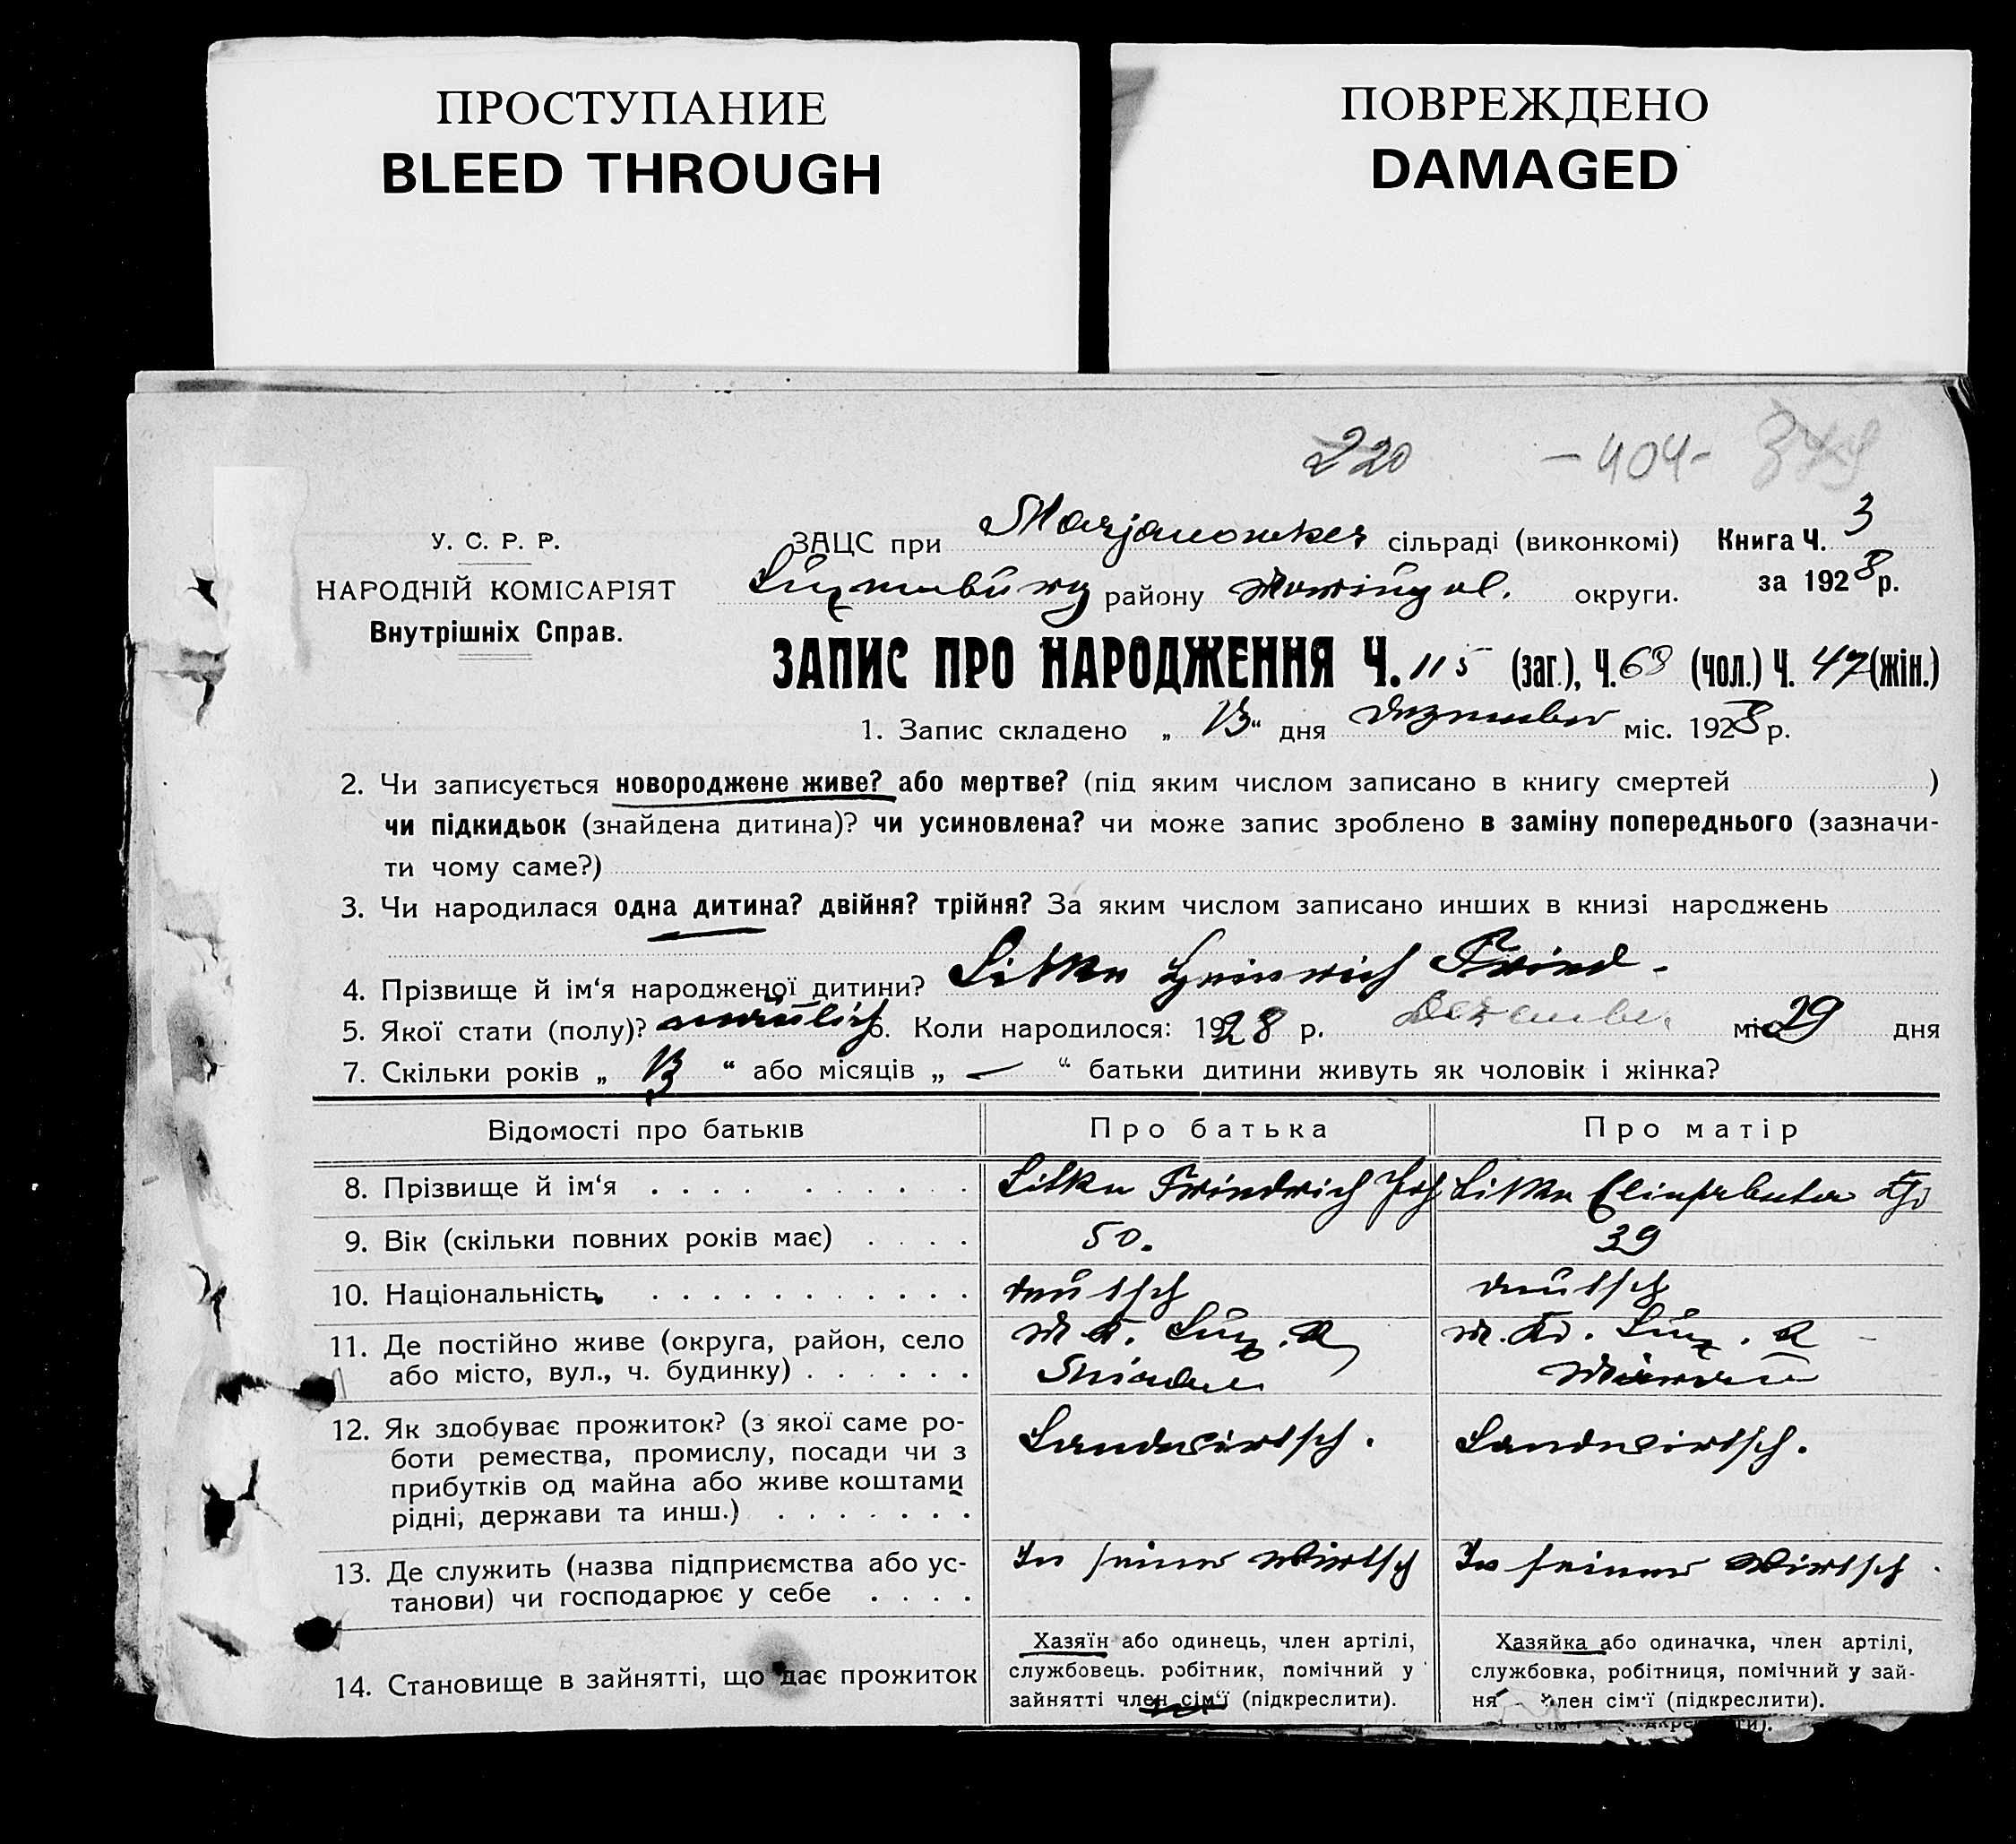 ПРОСТУПАНИЕ
BLEED THROUGH
ПОВРЕЖДЕНО
DAMAGED
220 -404-
У. С. Р. Р.
НАРОДНІЙ КОМІСАРІЯТ
Внутрішніх Справ.
ЗАЦС при Marjanowker сільраді (виконкомі) Книга Ч. 3
Luxemburg району Mariupol. округи. за 1928 р.
ЗАПИС ПРО НАРОДЖЕННЯ Ч. 115 (заг.), Ч. 68 (чол.) Ч. 47 (жін.)
1. Запис складено „ “ дня Dezember міс. 1928 р.
2. Чи записується новороджене живе? або мертве? (під яким числом записано в книгу смертей )
чи підкидьок (знайдена дитина)? чи усиновлена? чи може запис зроблено в заміну попереднього (зазначи-
ти чому саме?)
3. Чи народилася одна дитина? двійня? трійня? За яким числом записано инших в книзі народжень
4. Прізвище й ім‘я народженої дитини? Litke Heinrich Fried.
5. Якої стати (полу)? 6. Коли народилося: 1928 р. Dezember міс. 29 дня
7. Скільки років „ “ або місяців „ — “ батьки дитини живуть як чоловік і жінка?
Відомості про батьків Про батька Про матір
8. Прізвище й ім‘я Litke Friedrich Joh Litke
9. Вік (скільки повних років має) 50. 39
10. Національність deutsch deutsch
11. Де постійно живе (округа, район, село M. K. Lux. R M. Kr. Lux. R
або місто, вул., ч. будинку)
12. Як здобуває прожиток? (з якої саме ро- Landwirtsch. Landwirtsch.
боти ремества, промислу, посади чи з
прибутків од майна або живе коштами
рідні, держави та инш.)
13. Де служить (назва підприємства або ус- In seiner Wirtsch In seiner Wirtsch.
танови) чи господарює у себе
14. Становище в зайнятті, що дає прожиток
Хазяїн або одинець, член артілі,
службовець. робітник, помічний у
зайнятті член сім‘ї (підкреслити).
Хазяйка або одиначка, член артілі,
службовка, робітниця, помічний у зай-
ня член сім‘ї (підкреслити).